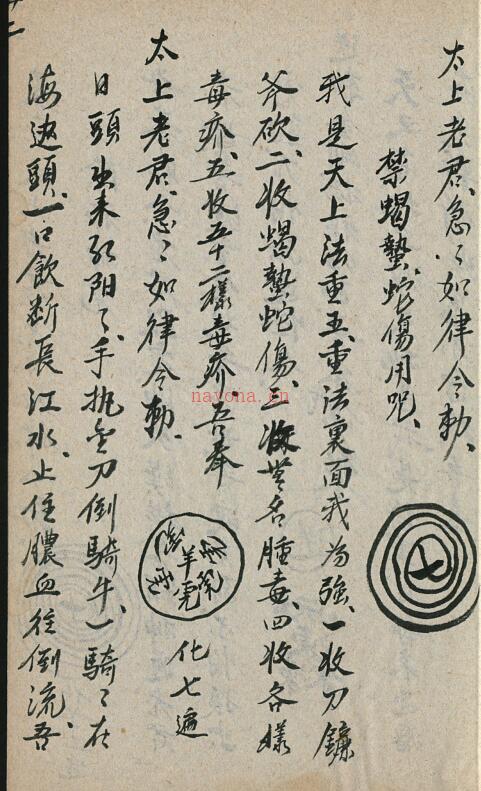 太上老君、急、如律令勅、
禁蝎蟄、蛇傷用咒、
我是天上法重五、重法裏面我为強、一收刀鐮
斧砍、二、收蝎蟄蛇傷、三、收無名腫毒、四收各樣
毒疥、五、收五十二樣毒疥、吾奉
太上老君、急、如律令勅、
化七遍
日頭出来紅阳、手执金刀倒騎牛、一騎、在
海边頭、一口飲断長江水、止住膿血徃倒流、吾
nayona.cn